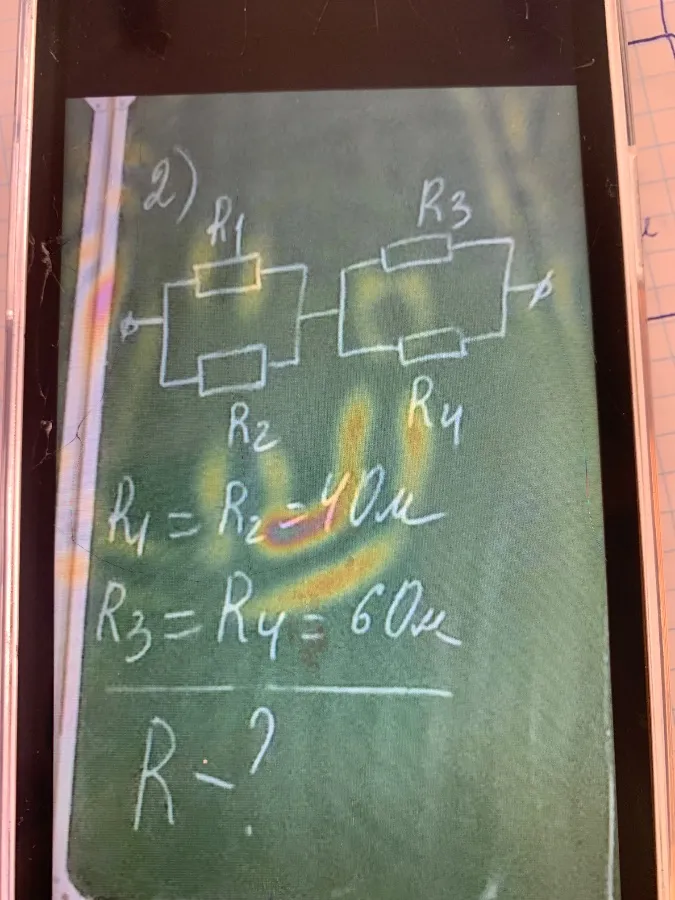 2)
R1
R3
R2
R4
R1 = R2 = 4 Ом
R3 = R4 = 6 Ом
R - ?